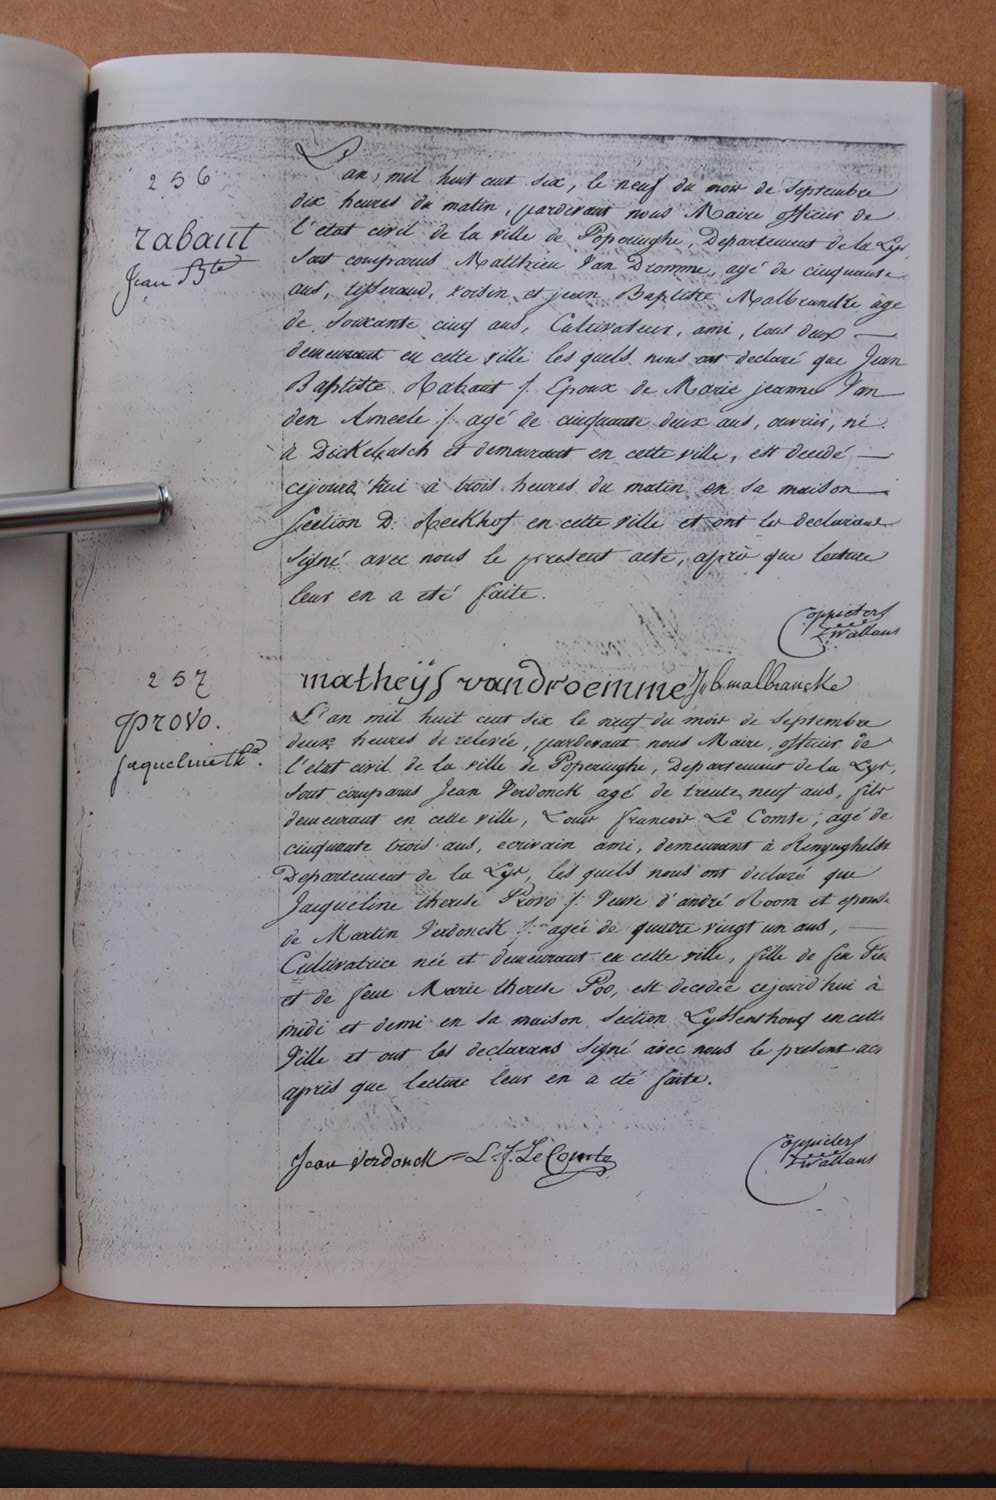 256
rabaut
Jean Bte
L'an, mil huit cent six, le neuf du mois de Septembre
dix heures du matin, pardevant nous Maire officier de
l'etat civil de la ville de Poperinghe, Departement de la Lys
sont comparus Matthieu Van Dromme, agé de cinquante
ans, tisserand, voisin et jean Baptiste Malbrancke age
de soixante cinq ans, Cultivateur, ami, tous deux —
demeurant en cette ville les quels nous ont declaré que Jean
Baptiste Rabaut /: Epoux de Marie jeanne Van
den Ameele :/ agé de cinquante deux ans, ouvrier, né
à Dickebusch et demeurant en cette ville, est decedé —
cejourd'hui à trois heures du matin en sa maison —
Section D: Reekhof en cette ville et ont les declarans
signé avec nous le present acte, après que lecture
leur en a eté faite.
Coppieters
Twallaus
matheÿs vandroemme J: b: malbrancke
257
provo.
jaqueline thsa.
L'an mil huit cent six le neuf du mois de Septembre
deux heures de relevée, pardevant nous Maire, officier de
l'etat civil de la ville de Poperinghe, Departement de la Lys,
sont comparus Jean Verdonck agé de trente neuf ans, fils
demeurant en cette ville, Louis francois Le Comte, agé de
cinquante trois ans, ecrivain ami, demeurant à Renynghelst
Departement de la Lys, les quels nous ont declaré que
Jacqueline therese Provo /: Veuve d'andré Room et epouse
de Martin Verdonck :/ agée de quatre vingt un ans, —
Cultivatrice née et demeurant en cette ville, fille de feu
et de feue Marie therese Poo, est decedée cejourd'hui à
midi et demi en sa maison Section Lyssenthouq en cette
Ville et ont les declarans signé avec nous le present acte
après que lecture leur en a eté faite.
Jean Verdonck = L. f. Le Comte
Coppieters
Twallaus